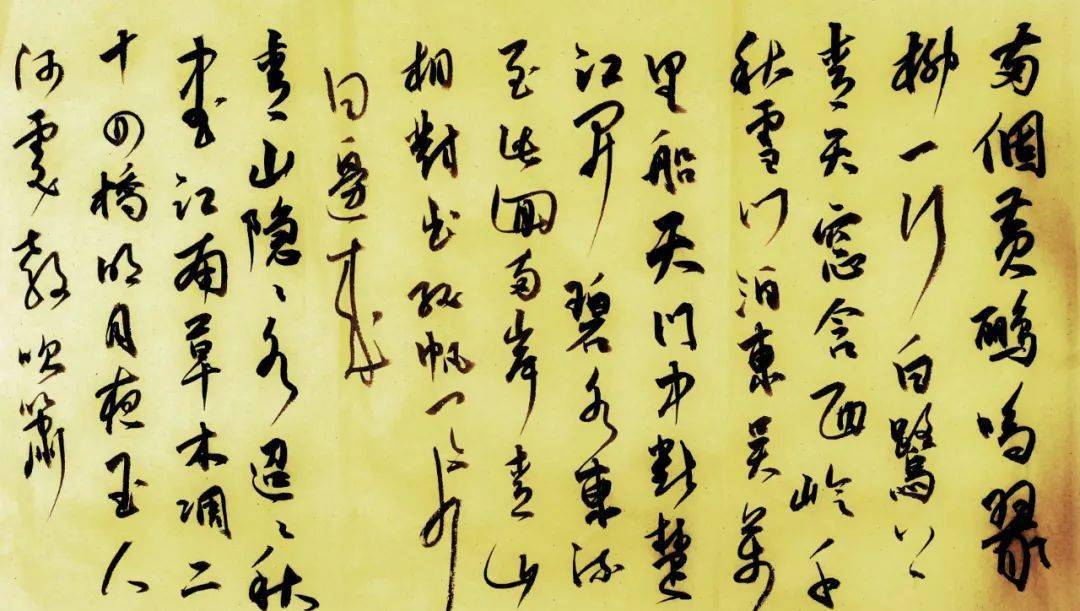 兩個黃鸝鳴翠
柳一行白鷺上
青天窓含西嶺千
秋雪門泊東吳萬
里船天門中斷楚
江開碧水東流
至此迴兩岸青山
相對出孤帆一片
日邊來
青山隐〻水迢〻秋
盡江南草木凋二
十四橋明月夜玉人
何處教吹簫